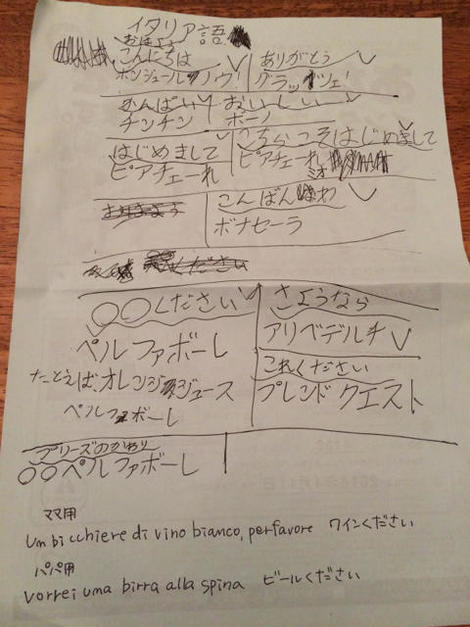 イタリア語
おはよう
こんにちは
ボンジュールノウ!
ありがとう
グラッツェ!
かんぱい
チンチン
おいしい
ボーノ
はじめまして
ピアチェーれ
こちらこそはじめまして
ピアチェーれ ミオ
こんばんわ
ボナセーラ
ください
○○ください
ペルファボーレ
たとえば、オレンジジュース
ペルファボーレ
さようなら
アリベデルチ
これください
プレンド クエスト
プリーズのかわり
○○ペルファボーレ
ママ用
Um bicchiere di vino bianco, perfavore ワインください
パパ用
vorrei uma birra alla spina ビールください